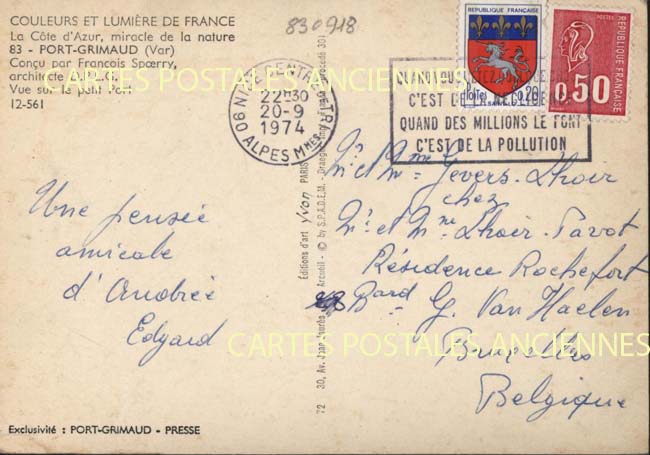 COULEURS ET LUMIÈRE DE FRANCE
La Côte d'Azur, miracle de la nature
83 - PORT-GRIMAUD (Var)
Conçu par François Spœrry,
architecte D.P.L.G.
Vue sur le petit Port
12-561
830918
NICE CENTRE TRI
22H30
20-9
1974
06 ALPES Mmes
QUAND
C'EST DE LA
QUAND DES MILLIONS LE FONT
C'EST DE LA POLLUTION
REPUBLIQUE FRANÇAISE
POSTES 0,20
POSTES
0,50
REPUBLIQUE FRANÇAISE
CARTES POSTALES ANCIENNES
Une pensée
amicale
d'Andrée
Edgard
Editions d'art Yvon PARIS
72 30, Av. Jean Jaurès Arcueil - © by S.P.A.D.E.M.
Mr et Mme Gevers-Lhoir
chez
Mr et Mme Lhoir-Pavot
Résidence Rochefort
Bard G. Van Haelen
Bruxelles
Belgique
CARTES POSTALES ANCIENNES
Exclusivité : PORT-GRIMAUD - PRESSE